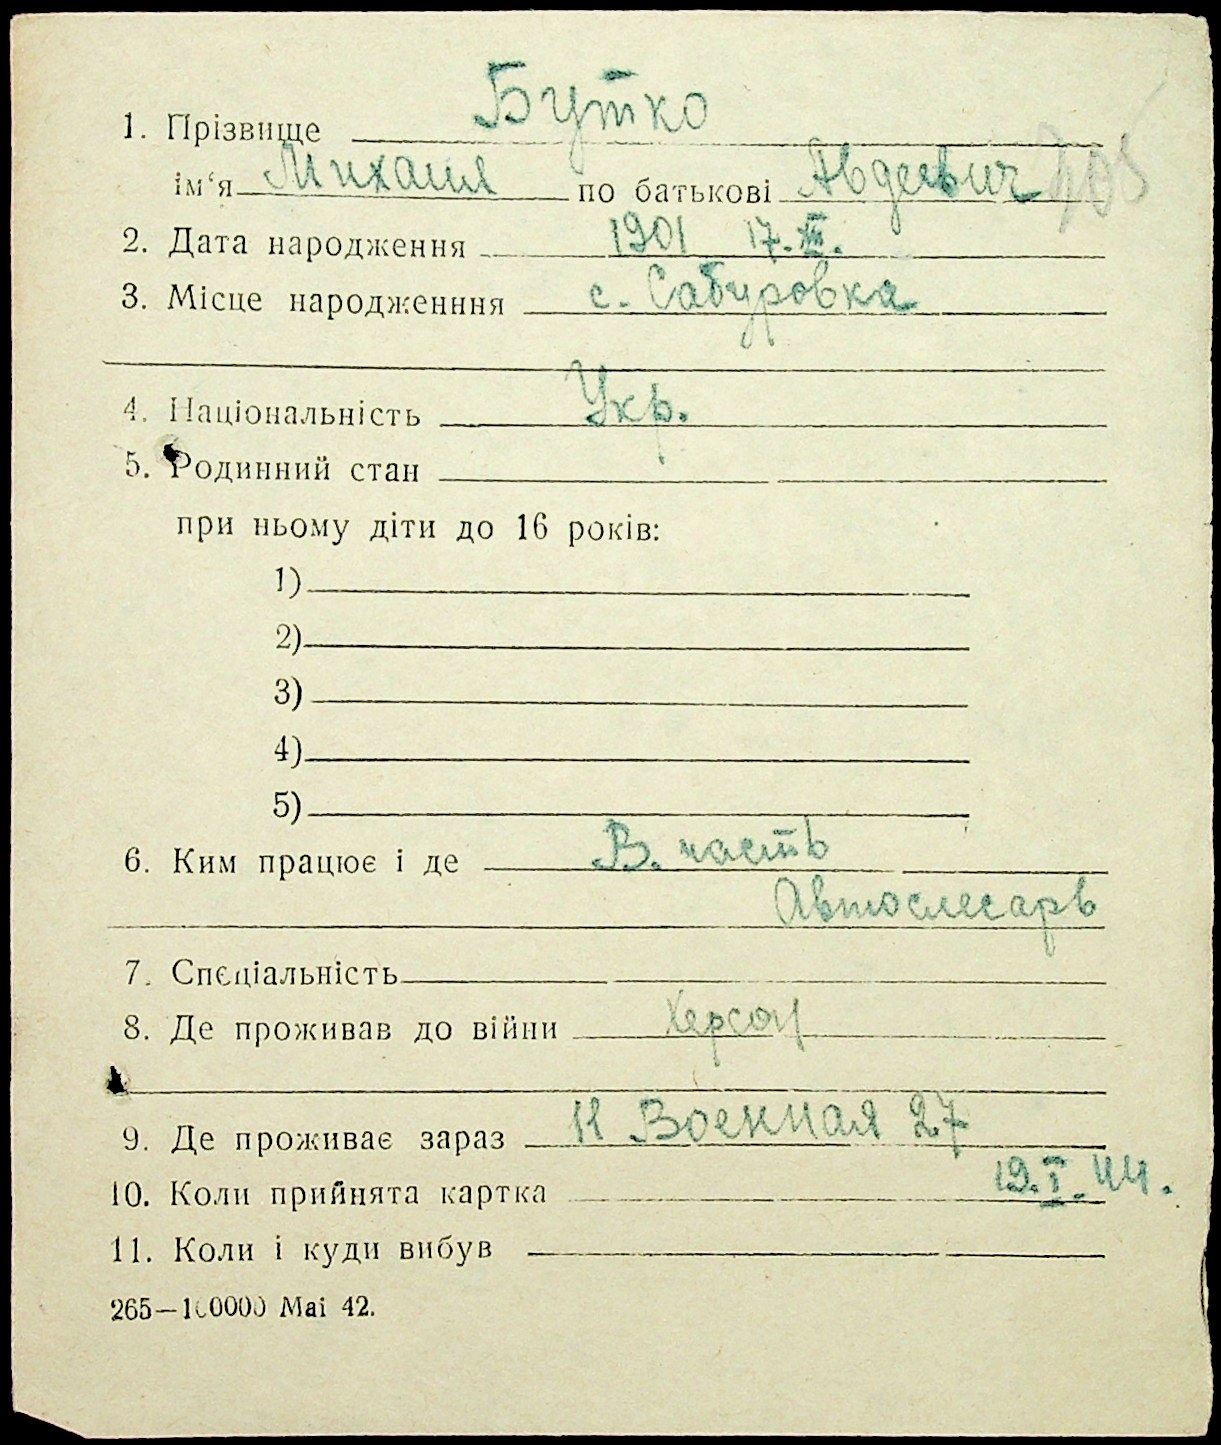 1. Прізвище Бутко
ім‘я Михаил по батькові Авдеевич 705
2. Дата народження 1901 17.
3. Місце народженння с. Сабуровка
4. Національність Укр.
5. Родинний стан
при ньому діти до 16 років:
1)
2)
3)
4)
5)
6. Ким працює і де В. часть
Автослесарь
7. Спеціальність
8. Де проживав до війни Херсон
9. Де проживає зараз 11 Военная 27
10. Коли прийнята картка 19.I.44.
11. Коли і куди вибув
265—100000 Mai 42.